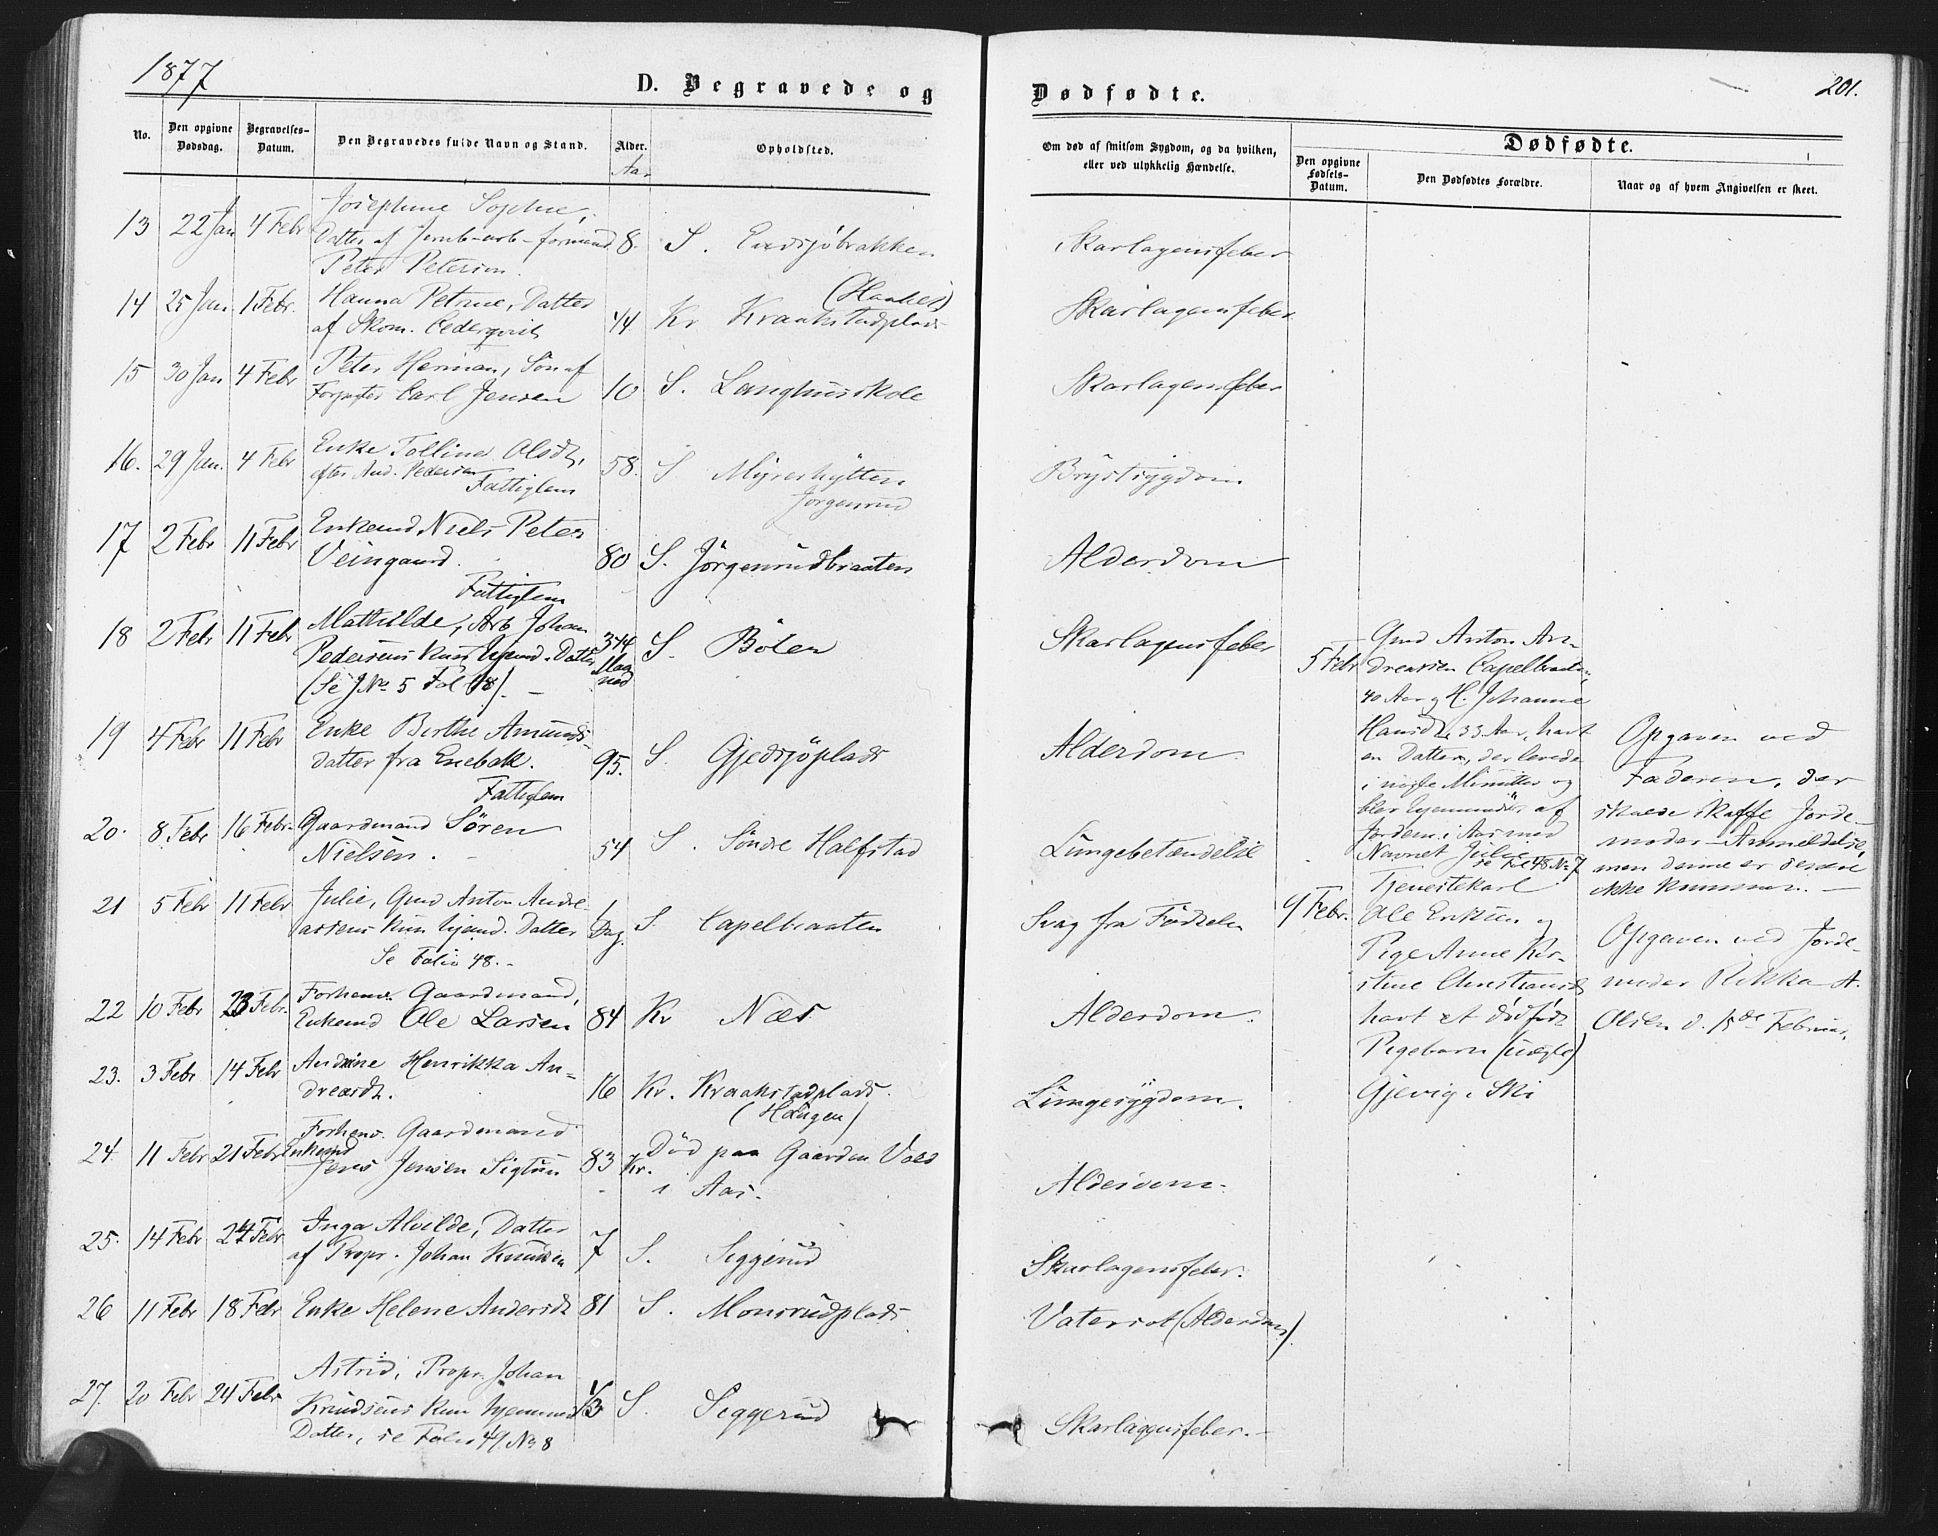 1877
D. Begravede og
Dødfødte.
201.
No.
Den opgivne Dødsdag.
Begravelses-Datum.
Den Begravedes fulde Navn og Stand.
Alder.
Aar
Opholdsted.
Om død af smitsom Sygdom, og da hvilken, eller ved ulykkelig Hændelse.
Dødfødte.
Den opgivne Fødsels-Datum.
Den Dødfødtes Forældre.
Naar og af hvem Angivelsen er skeet.
13 22 Jan 4 Febr Josephine Sophie,
Datter af Jernb-arb-formand 8. S. Skarlagensfeber
Peter Peterson.
14 25 Jan 1 Febr. Hanna Petrine, Datter
af Skom. Cederqvist Kr Kraakstadplads Skarlagensfeber
15 30 Jan 4 Febr Peter Herman, Søn af
Forpagter Carl Jensen 10 S. Langhusskole Skarlagensfeber
16. 29 Jan. 4 Febr Enke Olsdt,
efter And. Pedersen 58. S Myrerhytten Brystsygdom
Fattiglem Jørgenrud
17 2 Febr 11 Febr Enkemd Niels Peter
Veingaard. 80 S. Jørgenrudbraaten Alderdom
Fattiglem
18 2 Febr 11 Febr Mathilde, Arb Johan
Pedersens kun hjemd. Datter S. Bølen Skarlagensfeber
(Se J No 5 Fol 48). -
19 4 Febr 11 Febr Enke Berthe Amunds-
datter fra Enebak. 95. S. Gjedsjøplads Alderdom.
Fattiglem
20. 8 Febr 16 Febr. Gaardmand Søren
Nielsen. - 54 S. Søndre Halfstad Lungebetændelse
21 5 Febr 11 Febr Julie, Gmd Anton Andre-
asens kun hjemd. Datter 1 Dag. S. Capelbraaten Svag fra Fødselen
Se Folio 48. -
22 10 Febr 23 Febr. Forhenv. Gaardmand,
Enkemd Ole Larsen 84 Kr Næs Alderdom.
23. 3 Febr 14 Febr Andrine Henrikka An-
dreasdt. 16 Kr. Kraakstadplads. Lungesygdom.
(Haugen)
24. 11 Febr 21 Febr Forhenv. Gaardmand
Enkemd Jens Jensen 83 Kr. Død paa Gaarden Vold
i Aas. Alderdom.
25. 14 Febr 24 Febr Inga Alvilde, Datter
af Propr. Johan Knudsen 7 S. Siggerud Skarlagensfeber.
26 11 Febr 18 Febr Enke Helene Andersdt 81 S. Monsrudplads Vatersot (Alderdom).
27. 20 Febr 24 Febr Astrid, Propr. Johan
Knudsens kun hjemmed 1/3 S. Siggerud Skarlagensfeber. -
Datter, se Folio 49 No 8
5 Febr
Gmd Anton An-
dreasen Capelbraaten,
40 Aar og H. Johanne
Hansdt, 33 Aar, havt
en Datter, der levede
i nogle Minutter og
blev hjemmedøbt af
Jordem. i Aas med
Navnet Julie
se Fol 48 No 7
Opgaven ved
Faderen, der
skulde skaffe Jorde-
moder-Anmeldelse,
men denne er
ikke kommen. -
9 Febr.
Tjenestekarl
Ole Eriksen og
Pige Anne Kir-
stine Christiansdt
havt et dødfødt
Pigebarn (uægte)
Gjevig i Ski
Opgaven ved Jorde-
moder Rikka A.
Olsen d. 15de Februar.